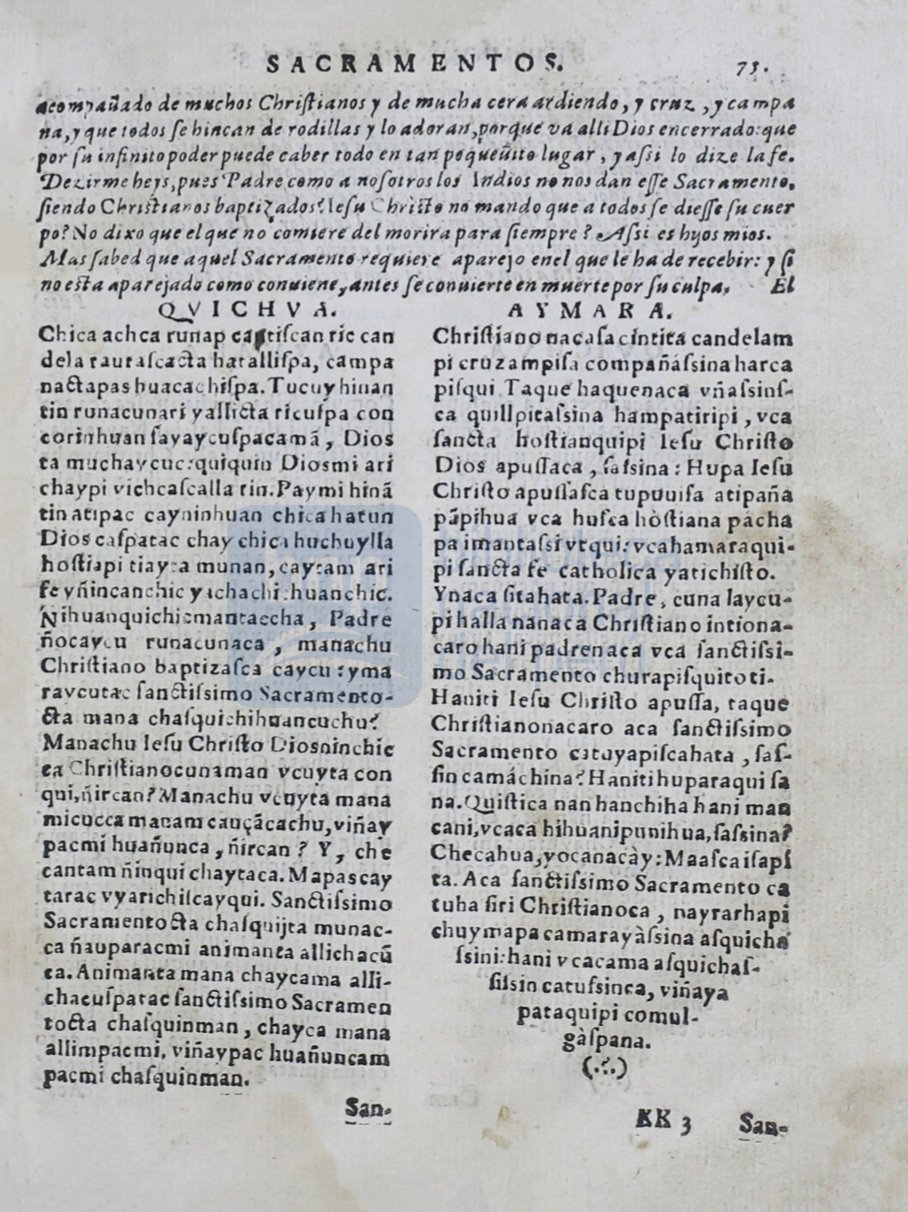 SACRAMENTOS. 75.
acompañado de muchos Chriſtianos y de mucha cera ardiendo, y cruz, y campa
na, y que todos ſe hincan de rodillas y lo adoran, porque va alli Dios encerrado: que
por ſu infinito poder puede caber todo en tan pequeñito lugar, y aſsi lo dize la fe.
Dezirme heys, pues Padre como a noſotros los Indios no nos dan eſſe Sacramento,
ſiendo Chriſtianos baptizados? Ieſu Chriſto no mando que a todos ſe dieſſe ſu cuer
po? No dixo que el que no comiere del morira para ſiempre? Aſsi es hijos mios.
Mas ſabed que aquel Sacramento requiere aparejo enel que le ha de recebir: y ſi
no eſta aparejado como conuiene, antes ſe conuierte en muerte por ſu culpa. El
QVICHVA.
Chica achca runap captiſcan ric can
dela rauraſcacta hatalliſpa, campa
nactapas huacachiſpa. Tucuy hinan
tin runacunari yallicta ricuſpa con
corinhuan ſayaycuſpacamã, Dios
ta muchaycuc: quiquin Diosmi ari
chaypi vichcaſcalla tin. Paymi hinã
tin atipac cayninhuan chica hatun
Dios caſpatac chay chica huchuylla
hoſtiapi tiayta munan, caytam ari
fe yñincanchic yachachihuanchic.
Ñihuanquichicmantaccha, Padre
ñocaycu runacunaca, manachu
Chriſtiano baptizaſca caycu: yma
raycutac ſanctiſsimo Sacramento-
cta mana chaſquichihuancuchu?
Manachu Ieſu Chriſto Diosninchic
ca Chriſtianocunaman vcuyta con
qui, ñircan? Manachu vcuyta mana
micucca manam cauçãcachu, viñay
pacmi huañunca, ñircan? Y, che
cantam ñinqui chaytaca. Mapas cay
tarac vyarichiſcayqui. Sanctiſsimo
Sacramentocta chaſquijta munac-
ca ñauparacmi animanta allichacũ
ca. Animanta mana chaycama alli-
chacuſpatac ſanctiſsimo Sacramen
tocta chaſquinman, chayca mana
allimpacmi, viñaypac huañuncam
pacmi chaſquinman.
San-
AYMARA.
Chriſtiano nacaſa cintita candelam
pi cruzampiſa compañáſsina harca
piſqui Taque haquenaca vñaſsinſ-
ca quillpitaſsina hampatiripi, vca
ſancta hoſtianquipi Ieſu Chriſto
Dios apuſſaca, ſaſsina: Hupa Ieſu
Chriſto apuſſaſca tupuuiſa atipaña
pãpihua vca huſca hòſtiana pacha
pa imantaſsi vtqui: vcahamaraqui-
pi ſancta fe catholica yatichiſto.
Ynaca ſitahata. Padre, cuna laycu-
pi halla nanaca Chriſtiano intiona-
caro hani padrenaca vca ſanctiſsi-
mo Sacramento churapiſquitoti.
Haniti Ieſu Chriſto apuſſa, taque
Chriſtianonacaro aca ſanctiſsimo
Sacramento catuyapiſcahata, ſaſ-
ſin camáchina? Haniti huparaqui ſa
na. Quiſtica nan hanchiha hani man
cani, vcaca hihuanipunihua, ſaſsina?
Checahua, yocanacày: Maaſca iſapſ
ta. Aca ſanctiſsimo Sacramento ca
tuha ſiri Chriſtianoca, nayrarhapi
chuymapa camarayàſsina aſquicha
ſsini: hani vcacama aſquichaſ-
ſiſsin catuſsinca, viñaya
pataquipi comul-
gàſpana.
(.·.)
KK 3 San-